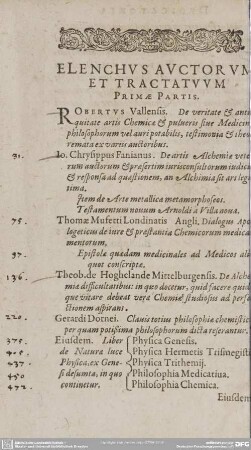 ELENCHVS AVCTORVM
ET TRACTATVVM
PRIMÆ PARTIS.
ROBERTVS Vallensis. De veritate & anti
quitate artis Chemicæ & pulveris sive Medicin
philosophorum vel auri potabilis, testimonia & theo
remata ex variis auctoribus.
31. Io. Chrysippus Fanianus. De artis Alchemiæ vete
rum auctorum & præsertim iurisconsultorum iudicii
& responsa ad quæstionem, an Alchimia sit ars legi
tima.
Item de Arte metallicæ metamorphoseos.
Testamentum novum Arnoldi à Villa nova.
75. Thomæ Mufetti Londinatis Angli, Dialogus Apo
logeticus de iure & præstantia Chemicorum medica
mentorum.
97. Epistolæ quædam medicinales ad Medicos ali
quot conscriptæ.
136. Theob. de Hoghelande Mittelburgensis. De Alche
miæ difficultatibus: in quo docetur, quid scire quid
que vitare debeat veræ Chemiæ studiosus ad perfe
ctionem aspirans.
220. Gerardi Dornei. Clavis totius philosophiæ chemistic
per quam potissima philosophorum dicta reserantur.
375. Eiusdem. Liber Physica Genesis.
408. de Naturæ luce Physica Hermetis Trismegisti
437. Physica, ex Gene Physica Trithemij.
450 si desumta, in quo Philosophia Medicatiua.
472. continetur, Philosophia Chemica.
Eiusdem